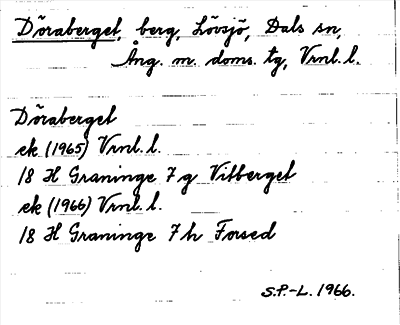 Döraberget, berg, Lövsjö, Dals sn,
Ång. m. doms. tg, Vrnl. l.
Döraberget
ek (1965) Vrnl. l.
18 H Graninge 7 g Vitberget
ek (1966) Vrnl. l.
18 H Graninge 7 h Forsed
S.P.-L. 1966.